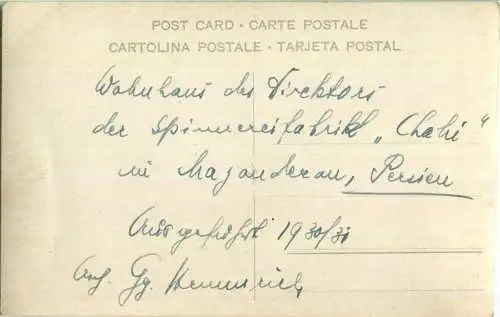 POST CARD · CARTE POSTALE
CARTOLINA POSTALE · TARJETA POSTAL
Wohnhaus des Direktors
der Spinnereifabrik „Chahi“
in Mazanderan, Persien
Ausgeführt 1930/31
Gg.